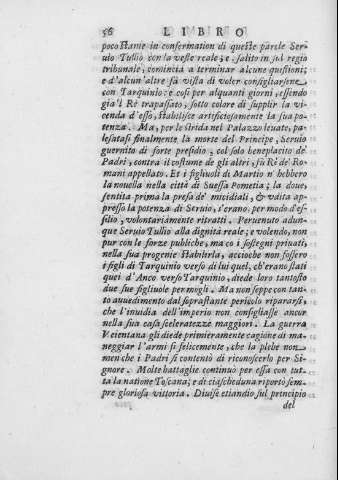 56 LIBRO
poco stante in confermation di queste parole Ser-
uio Tullio con la veste reale; e salito in sul regio
tribunale, comincia a terminar alcune quistioni;
e d'alcun' altre fà vista di voler consigliarsene
con Tarquinio: e così per alquanti giorni, essendo
già 'l Rè trapassato, sotto colore di supplir la vi-
cenda d'esso, stabilisce artificiosamente la sua po-
tenza. Ma, per le strida nel Palazzo leuate, pa-
lesatasi finalmente la morte del Principe, Seruio
guernito di forte presidio, col solo beneplacito de'
Padri, contra il costume de gli altri, fù Rè de' Ro-
mani appellato. Et i figliuoli di Martio n' hebbero
la nouella nella città di Suessa Pometia; la doue,
sentita prima la presa de' micidiali, & vdita ap-
presso la potenza di Seruio, s'erano, per modo d'es-
silio, volontariamente ritratti. Peruenuto adun-
que Seruio Tullio alla dignità reale; e volendo, non
pur con le forze publiche, ma co i sostegni priuati,
nella sua progenie stabilirla, acciochè non fossero
i figli di Tarquinio verso di lui quel, ch'erano stati
quei d'Anco verso Tarquinio, diede loro tantosto
due sue figliuole per mogli. Ma non seppe con tan-
to auuedimento dal soprastante pericolo ripararsi,
che l'inuidia dell'imperio non consigliasse ancor
nella sua casa sceleratezze maggiori. La guerra
Veientana gli diede primieramente cagione di ma-
neggiar l'armi sì felicemente, che la plebe non
men che i Padri si contentò di riconoscerlo per Si-
gnore. Molte battaglie continuò per essa con tut-
ta la natione Toscana; e di ciascheduna riportò sem-
pre gloriosa vittoria. Diuise etiandio sul principio
del